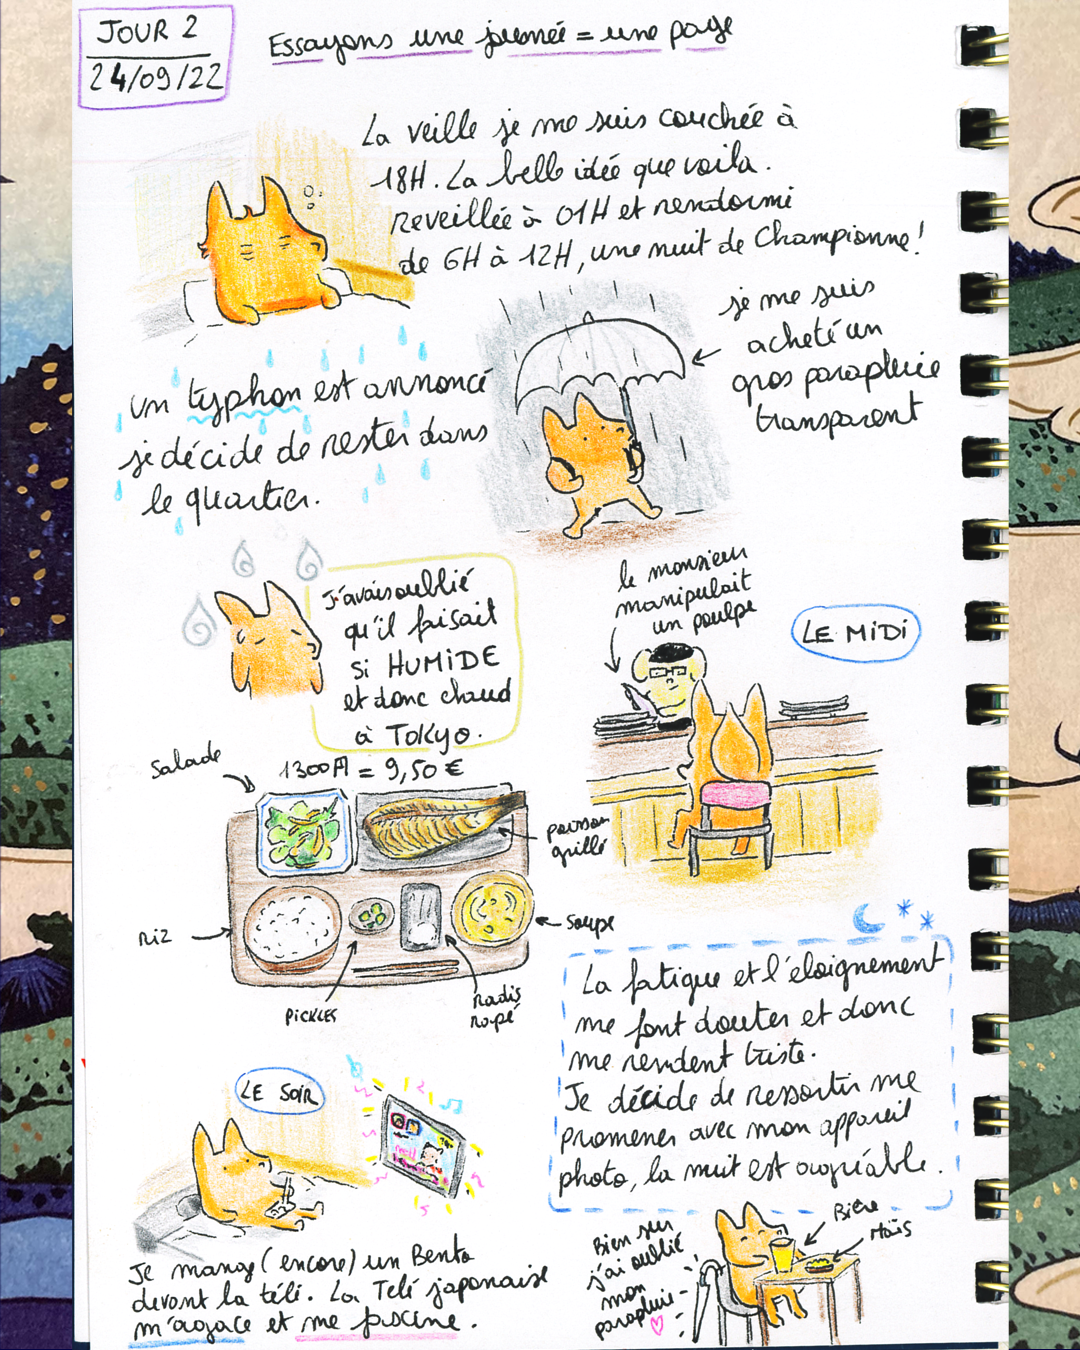 JOUR 2
24/09/22
Essayons une journée = une page
La veille je me suis couchée à
18H. La belle idée que voila.
reveillée à 01H et rendormi
de 6H à 12H, une nuit de Championne !
je me suis
acheté un
gros parapluie
transparent
un typhon est annoncé
je décide de rester dans
le quartier.
J'avais oublié
qu'il faisait
si HUMIDE
et donc chaud
à TOKYO.
le monsieur
manipulait
un poulpe
LE MIDI
Salade
1300 = 9,50 €
poisson
grillé
Riz
Soupe
PICKLES
Radis
rapé
La fatigue et l'éloignement
me font douter et donc
me rendent triste.
Je décide de ressortir me
promener avec mon appareil
photo, la nuit est agréable.
LE SOIR
Je mange (encore) un Bento
devant la télé. La Télé japonaise
m'agace et me fascine.
Bien sur
j'ai oublié
mon
parapluie
Bière
Maïs